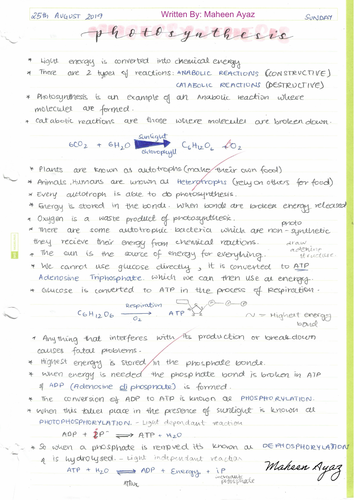 25th AUGUST 2019 Written By: Maheen Ayaz SUNDAY
photosynthesis
* Light energy is converted into chemical energy
* There are 2 types of reactions: ANABOLIC REACTIONS (CONSTRUCTIVE)
CATABOLIC REACTIONS (DESTRUCTIVE)
* Photosynthesis is an example of an Anabolic reaction where
molecules are formed.
* Catabolic reactions are those where molecules are broken down.
sunlight
6CO2 + 6H2O C6H12O6 + O2
chlorophyll
* Plants are known as autotrophs (make their own food)
* Animals, humans are known as Heterotrophs (rely on others for food)
* Every autotroph is able to do photosynthesis.
* Energy is stored in the bonds. When bonds are broken energy released
* Oxygen is a waste product of photosynthesis.
photo
* There are some autotrophic bacteria which are non-synthetic
they recieve their energy from chemical reactions.
draw
adenine
structure
* The sun is the source of energy for everything.
* We cannot use glucose directly, it is converted to ATP
Adenosine Triphosphate. which we can then use as energy.
* Glucose is converted to ATP in the process of Respiration.
C6H12O6 Respiration O2 ATP
~ = Highest energy
bond
* Anything that interferes with its production or breakdown
causes fatal problems.
* Highest energy is stored in the phosphate bonds.
* When energy is needed the phosphate bond is broken in ATP
& ADP (Adenosine di phosphate) is formed.
* The conversion of ADP to ATP is known as PHOSPHORYLATION.
* When this takes place in the presence of sunlight is known as
PHOTOPHOSPHORYLATION. - Light dependant reaction
ADP + iP ⇌ ATP + H2O
* So when a phosphate is removed its known as DEPHOSPHORYLATION
& is hydrolysed. - Light independant reaction
ATP + H2O ⇌ ADP + Energy + iP
phosphate
Maheen Ayaz